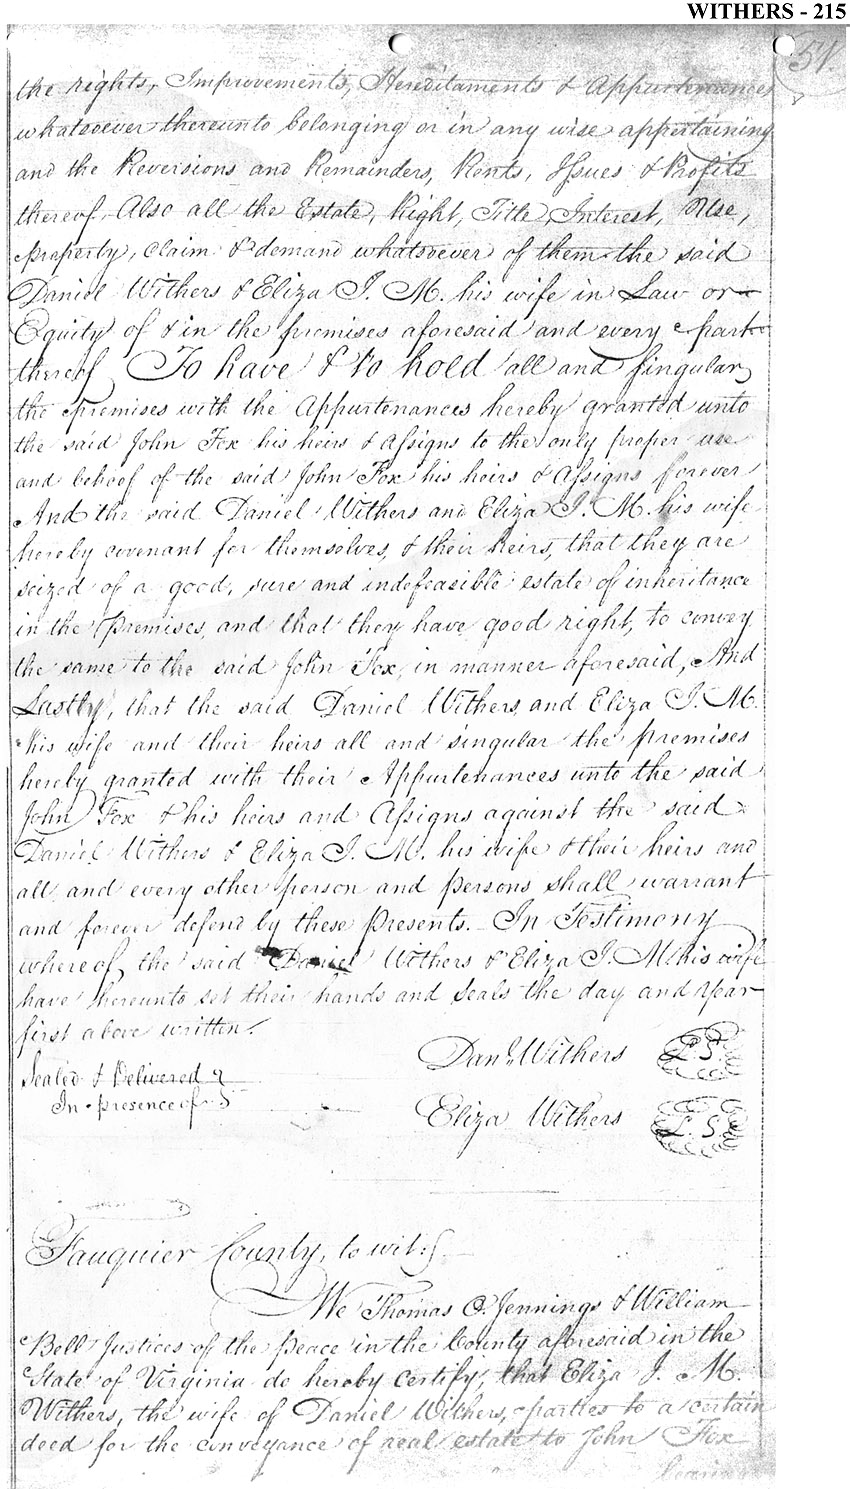 WITHERS - 215
51.
the rights, Improvements, Hereditaments & Appurtenances
whatsoever thereunto belonging or in any wise appertaining
and the Reversions and Remainders, Rents, Issues & Profits
thereof. Also all the Estate, Right, Title, Interest, Use,
property, claim & demand whatsoever of them the said
Daniel Withers & Eliza I. M. his wife in Law or
Equity of & in the premises aforesaid and every part
thereof To have & to hold all and singular
the premises with the Appurtenances hereby granted unto
the said John Fox his heirs & Assigns to the only proper use
and behoof of the said John Fox his heirs & Assigns forever
And the said Daniel Withers and Eliza I. M. his wife
hereby covenant for themselves, & their heirs, that they are
seized of a good, sure and indefeasible estate of inheritance
in the Premises, and that they have good right, to convey
the same to the said John Fox, in manner aforesaid, And
Lastly, that the said Daniel Withers and Eliza I. M.
his wife and their heirs all and singular the premises
hereby granted with their Appurtenances unto the said
John Fox & his heirs and Assigns against the said
Daniel Withers & Eliza I. M. his wife & their heirs and
all and every other person and persons shall warrant
and forever defend by these Presents. In Testimony
whereof, the said Daniel Withers & Eliza I. M. his wife
have hereunto set their hands and seals the day and year
first above written.
Sealed & Delivered
In presence of
Danl. Withers L.S.
Eliza Withers L.S.
Fauquier County, to wit:
We Thomas O. Jennings & William
Bell Justices of the peace in the County aforesaid in the
State of Virginia do hereby certify, that Eliza I. M.
Withers, the wife of Daniel Withers, parties to a certain
deed for the conveyance of real estate to John Fox